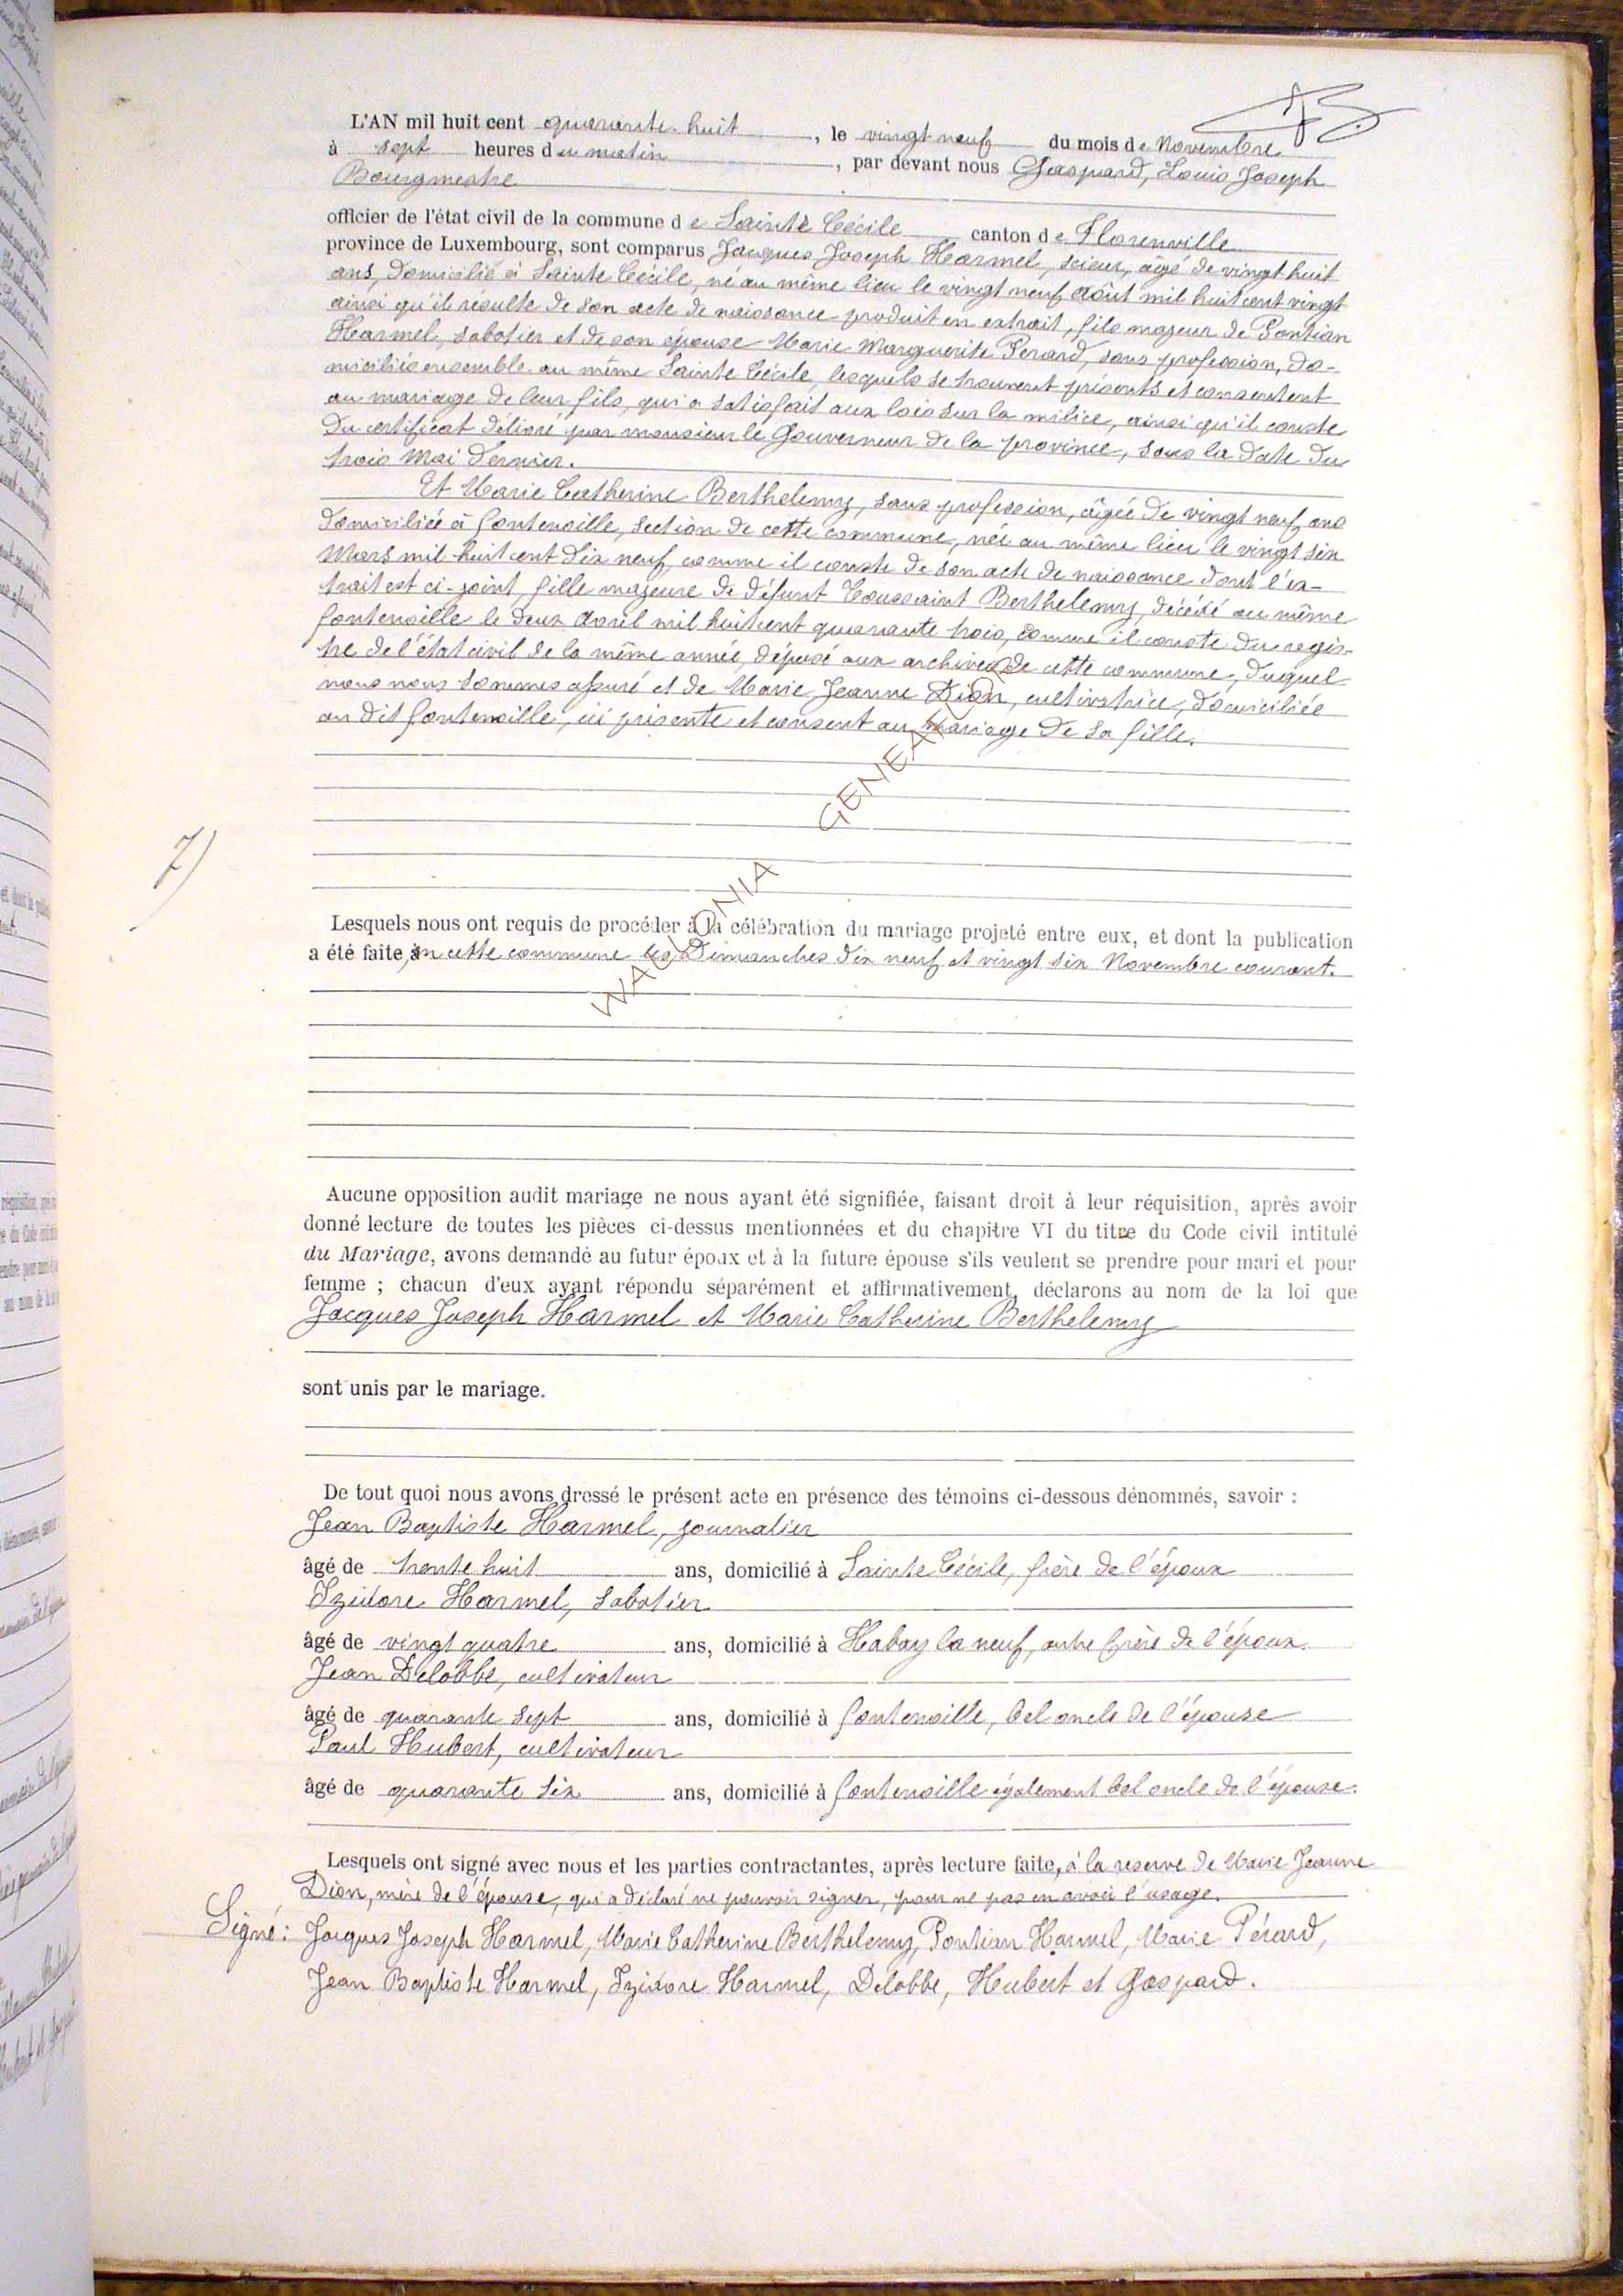 L'AN mil huit cent quarante-huit, le vingt neuf du mois de Novembre
à sept heures du matin, par devant nous Gaspard, Louis Joseph
Bourgmestre
officier de l'état civil de la commune de Sainte Cécile canton de Florenville
province de Luxembourg, sont comparus Jacques Joseph Harmel, scieur, âgé de vingt huit
ans, domicilié à Sainte Cécile, né au même lieu le vingt neuf Août mil huit cent vingt
ainsi qu'il résulte de son acte de naissance produit en extrait, fils majeur de Pontian
Harmel, sabotier et de son épouse Marie Marguerite Perard, sans profession, do-
miciliés ensemble au même Sainte Cécile, lesquels se trouvent présents et consentent
au mariage de leur fils, qui a satisfait aux lois sur la milice, ainsi qu'il conste
du certificat délivré par monsieur le Gouverneur de la province, sous la date du
trois Mai dernier.
Et Marie Catherine Berthelemy, sans profession, âgée de vingt neuf ans
domiciliée à fontenoille, section de cette commune, née au même lieu le vingt six
Mars mil huit cent dix neuf, comme il conste de son acte de naissance dont l'ex-
trait est ci-joint, fille majeure de défunt Toussaint Berthelemy, décédé au même
fontenoille le deux Avril mil huit cent quarante trois, comme il conste du regis-
tre de l'état civil de la même année, déposé aux archives de cette commune, duquel
nous nous sommes assuré et de Marie Jeanne Dion, cultivatrice, domiciliée
au dit fontenoille, ici présente et consent au mariage de sa fille.
7)
Lesquels nous ont requis de procéder à la célébration du mariage projeté entre eux, et dont la publication
a été faite, en cette commune les Dimanches dix neuf et vingt six Novembre courant.
WALLONIA GENEALOGY
Aucune opposition audit mariage ne nous ayant été signifiée, faisant droit à leur réquisition, après avoir
donné lecture de toutes les pièces ci-dessus mentionnées et du chapitre VI du titre du Code civil intitulé
du Mariage, avons demandé au futur époux et à la future épouse s'ils veulent se prendre pour mari et pour
femme ; chacun d'eux ayant répondu séparément et affirmativement, déclarons au nom de la loi que
Jacques Joseph Harmel et Marie Catherine Berthelemy
sont unis par le mariage.
De tout quoi nous avons dressé le présent acte en présence des témoins ci-dessous dénommés, savoir :
Jean Baptiste Harmel, journalier
âgé de trente huit ans, domicilié à Sainte Cécile, frère de l'époux
Izidore Harmel, sabotier
âgé de vingt quatre ans, domicilié à Habay la neuf, autre frère de l'époux.
Jean Delobbe, cultivateur
âgé de quarante sept ans, domicilié à fontenoille, bel oncle de l'épouse
Paul Hubert, cultivateur
âgé de quarante six ans, domicilié à fontenoille également bel oncle de l'épouse.
Lesquels ont signé avec nous et les parties contractantes, après lecture faite, à la reserve de Marie Jeanne
Dion, mère de l'épouse, qui a déclaré ne pouvoir signer, pour ne pas en avoir l'usage.
Signé : Jacques Joseph Harmel, Marie Catherine Berthelemy, Pontian Harmel, Marie Pérard,
Jean Baptiste Harmel, Izidore Harmel, Delobbe, Hubert et Gaspard.